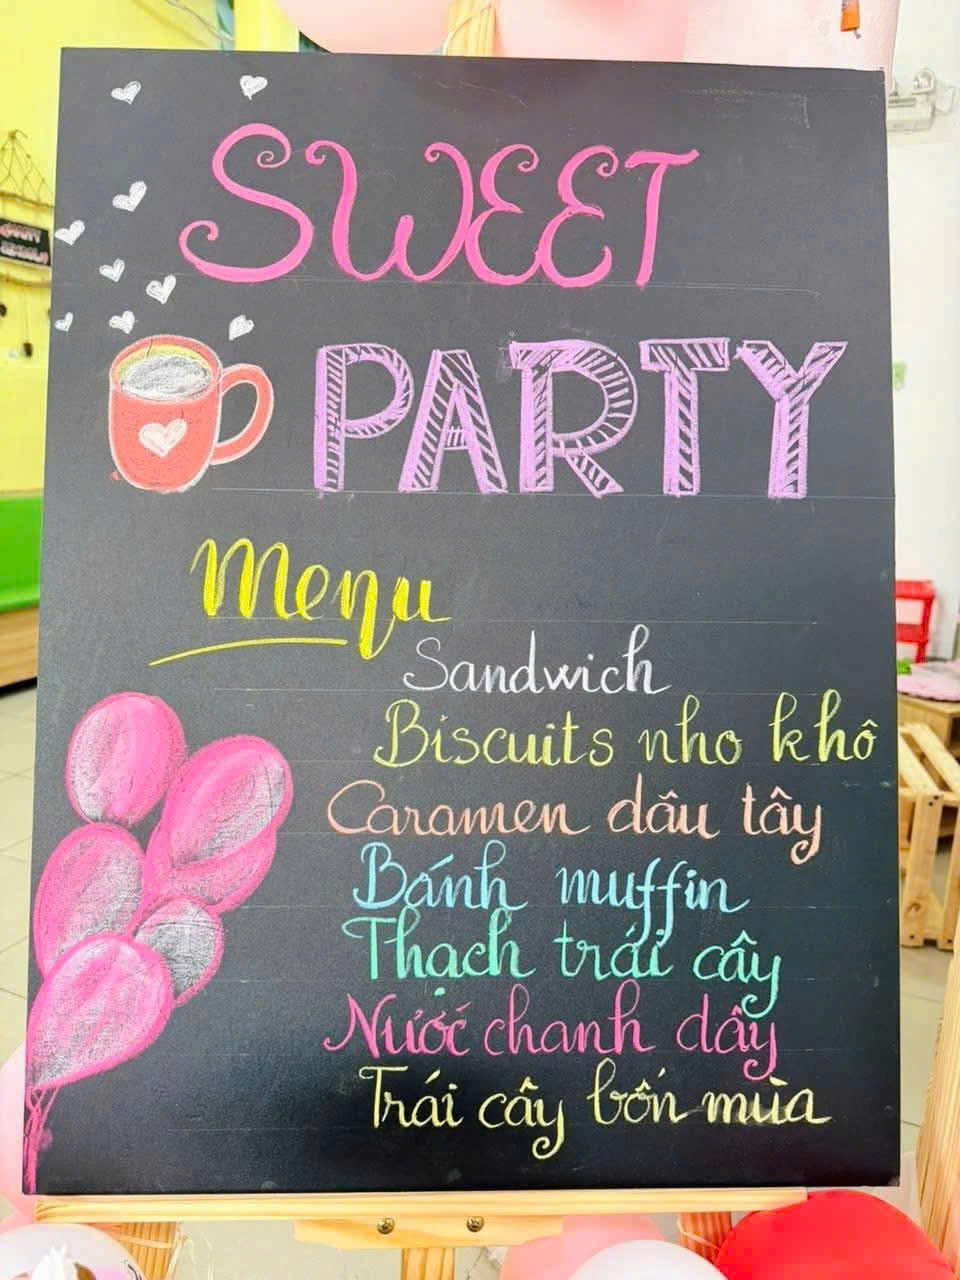 SWEET
PARTY
Menu
Sandwich
Biscuits nho khô
Caramen dâu tây
Bánh muffin
Thạch trái cây
Nước chanh dây
Trái cây bốn mùa